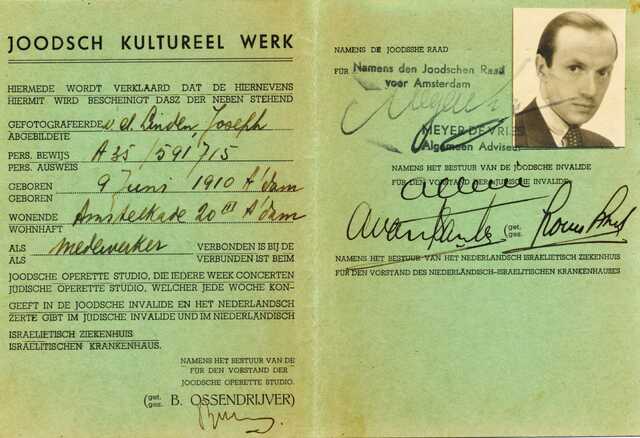 JOODSCH KULTUREEL WERK
HIERMEDE WORDT VERKLAARD DAT DE HIERNEVENS
HIERMIT WIRD BESCHEINIGT DASZ DER NEBEN STEHEND
GEFOTOGRAFEERDE v.d. Linden Joseph
ABGEBILDETE
PERS. BEWIJS A 35 / 591715
PERS. AUSWEIS
GEBOREN 9 Juni 1910 A'dam
GEBOREN
WONENDE Amstelkade 20 III A'dam
WOHNHAFT
ALS medewerker VERBONDEN IS BIJ DE
ALS VERBUNDEN IST BEIM
JOODSCHE OPERETTE STUDIO, DIE IEDERE WEEK CONCERTEN
JÜDISCHE OPERETTE STUDIO, WELCHER JEDE WOCHE KON-
GEEFT IN DE JOODSCHE INVALIDE EN HET NEDERLANDSCH
ZERTE GIBT IM JÜDISCHE INVALIDE UND IM NIEDERLÄNDISCH
ISRAELIETISCH ZIEKENHUIS
ISRAELITISCHEN KRANKENHAUS.
NAMENS HET BESTUUR VAN DE
FÜR DEN VORSTAND DER
JOODSCHE OPERETTE STUDIO.
(get. B. OSSENDRIJVER)
ges.
NAMENS DE JOODSSHE RAAD
FÜR
Namens den Joodschen Raad
voor Amsterdam
MEYER DE VRIES
Algemeen Adviseur
NAMENS HET BESTUUR VAN DE JOODSCHE INVALIDE
FÜR DEN VORSTAND DER JÜDISCHE INVALIDE
(get.
ges.
NAMENS HET BESTUUR VAN HET NEDERLANDSCH ISRAELIETISCH ZIEKENHUIS
FÜR DEN VORSTAND DES NIEDERLÄNDISCH-ISRAELITISCHEN KRANKENHAUSES